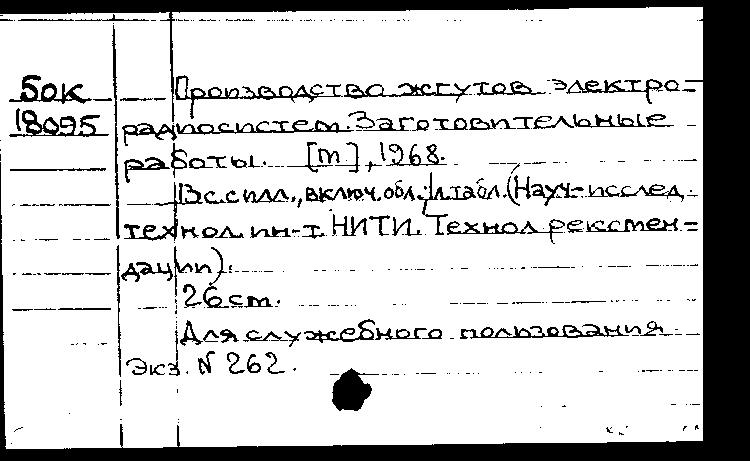 50К Производство жгутов электро-
18095 радиосистем. Заготовительные
работы. [m], 1968.
13с. с илл., включ. обл.; 1л. табл. (Науч-исслед.
технол. ин-т. НИТИ. Технол рекомен-
дации).
26 cm.
Для служебного пользования
Экз. N 262.